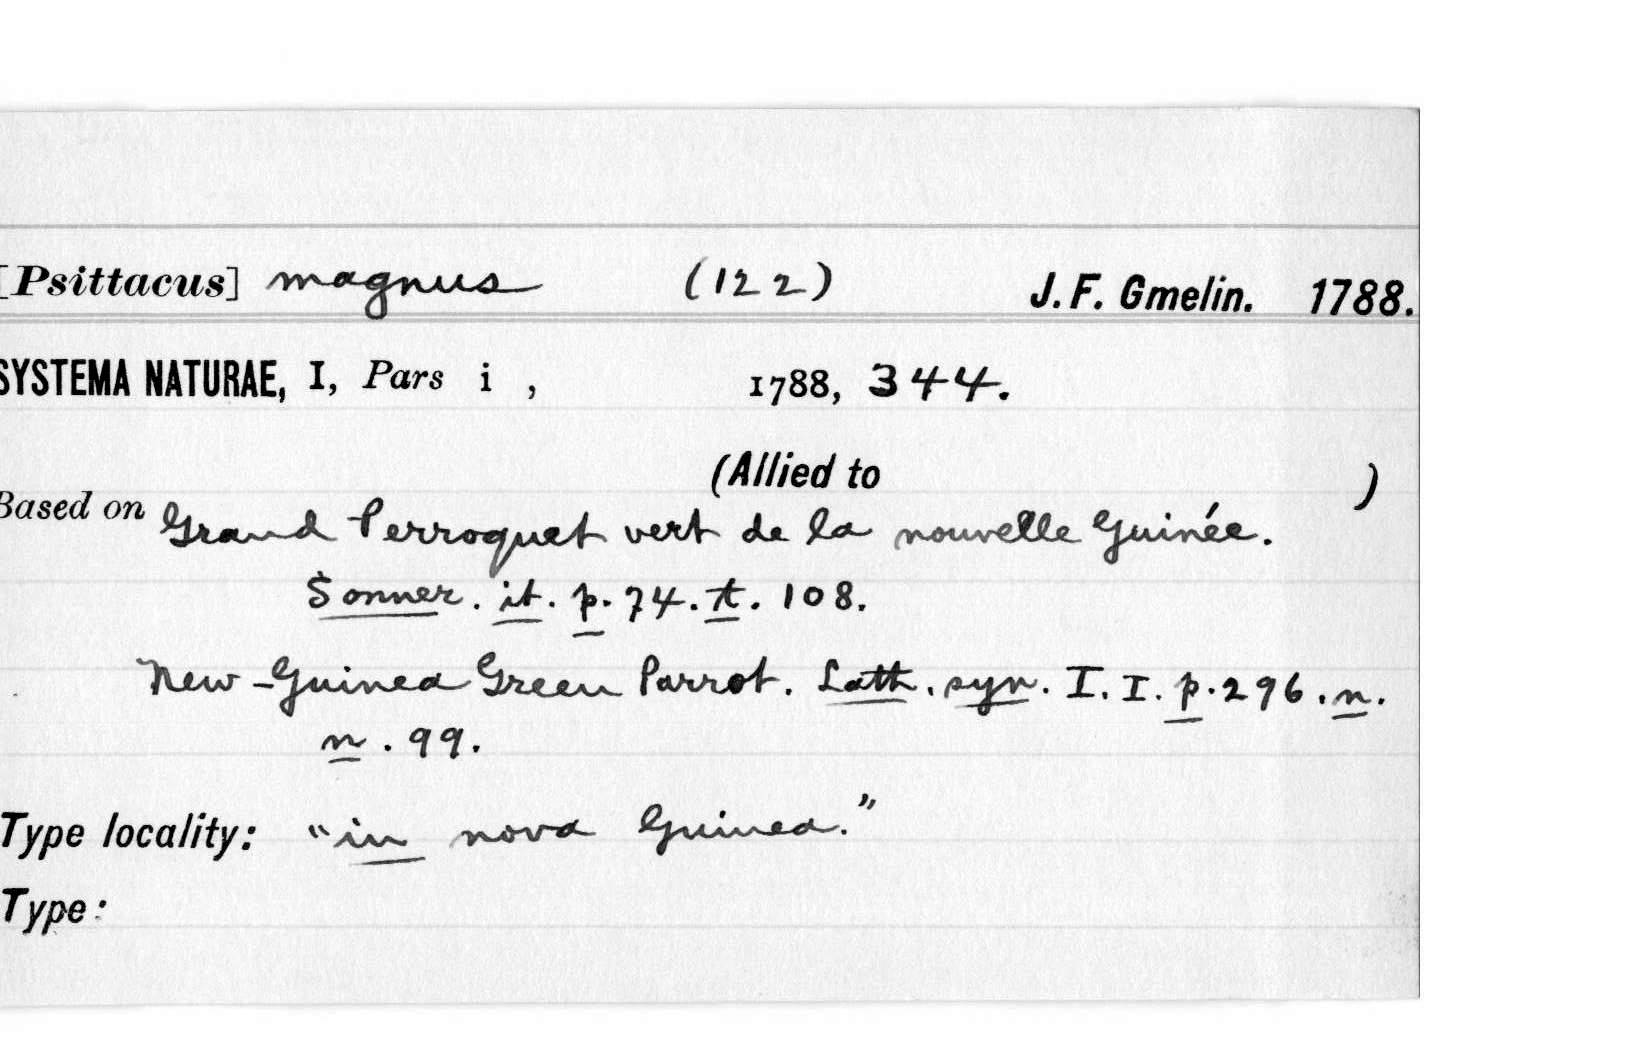 [Psittacus] magnus (122) J. F. Gmelin. 1788.
SYSTEMA NATURAE, I, Pars i , 1788, 344.
(Allied to )
Based on Grand Perroquet vert de la nouvelle Guinée.
Sonner. it. p. 74. t. 108.
New-Guinea Green Parrot. Lath. syn. I. I. p. 296. n.
n. 99.
Type locality: "in nova Guinea."
Type: